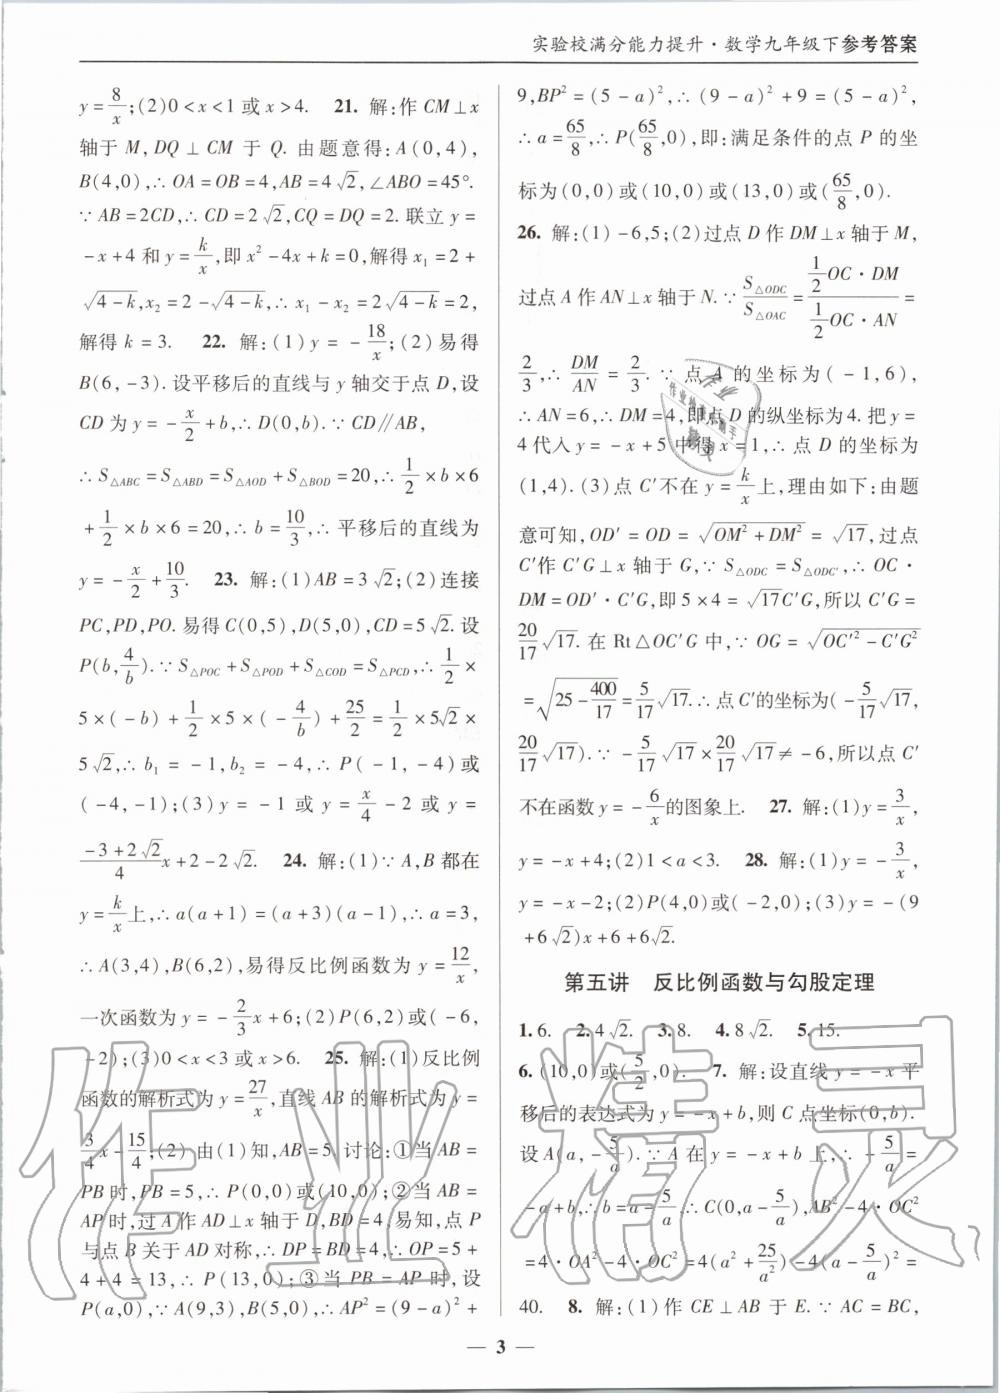 实验校满分能力提升·数学九年级下参考答案
y=8/x;(2)0<x<1或x>4. 21. 解:作CM⊥x
轴于M,DQ⊥CM于Q. 由题意得:A(0,4),
B(4,0),∴OA=OB=4,AB=4√2,∠ABO=45°.
∵AB=2CD,∴CD=2√2,CQ=DQ=2. 联立y=
-x+4和y=k/x,即x²-4x+k=0,解得x₁=2+
√(4-k),x₂=2-√(4-k),∴x₁-x₂=2√(4-k)=2,
解得k=3. 22. 解:(1)y=-18/x;(2)易得
B(6,-3).设平移后的直线与y轴交于点D,设
CD为y=-x/2+b,∴D(0,b).∵CD∥AB,
∴S△ABC=S△ABD=S△AOD+S△BOD=20,∴1/2×b×6
+1/2×b×6=20,∴b=10/3,∴平移后的直线为
y=-x/2+10/3. 23. 解:(1)AB=3√2;(2)连接
PC,PD,PO.易得C(0,5),D(5,0),CD=5√2.设
P(b,4/b).∵S△POC+S△POD+S△COD=S△PCD,∴1/2×
5×(-b)+1/2×5×(-4/b)+25/2=1/2×5√2×
5√2,∴b₁=-1,b₂=-4,∴P(-1,-4)或
(-4,-1);(3)y=-1或y=x/4-2或y=
(-3+2√2)/4x+2-2√2. 24. 解:(1)∵A,B都在
y=k/x上,∴a(a+1)=(a+3)(a-1),∴a=3,
∴A(3,4),B(6,2),易得反比例函数为y=12/x,
一次函数为y=-2/3x+6;(2)P(6,2)或(-6,
-2);(3)0<x<3或x>6. 25. 解:(1)反比例
函数的解析式为y=27/x,直线AB的解析式为y=
3/4x-15/4;(2)由(1)知,AB=5,讨论:①当AB=
PB时,PB=5,∴P(0,0)或(10,0);②当AB=
AP时,过A作AD⊥x轴于D,BD=4,易知,点P
与点B关于AD对称,∴DP=BD=4,∴OP=5+
4+4=13,∴P(13,0);③当PB=AP时,设
P(a,0),∵A(9,3),B(5,0),∴AP²=(9-a)²+
9,BP²=(5-a)²,∴(9-a)²+9=(5-a)²,
∴a=65/8,∴P(65/8,0),即:满足条件的点P的坐
标为(0,0)或(10,0)或(13,0)或(65/8,0).
26. 解:(1)-6,5;(2)过点D作DM⊥x轴于M,
过点A作AN⊥x轴于N.∵S△ODC/S△OAC=(1/2OC·DM)/(1/2OC·AN)=
2/3,∴DM/AN=2/3.∵点A的坐标为(-1,6),
∴AN=6,∴DM=4,即点D的纵坐标为4.把y=
4代入y=-x+5中得x=1,∴点D的坐标为
(1,4).(3)点C′不在y=k/x上,理由如下:由题
意可知,OD′=OD=√(OM²+DM²)=√17,过点
C′作C′G⊥x轴于G,∵S△ODC=S△OD′C′,∴OC·
DM=OD′·C′G,即5×4=√17C′G,所以C′G=
20/17√17.在Rt△OC′G中,∵OG=√(OC′²-C′G²)
=√(25-400/17)=5/17√17.∴点C′的坐标为(-5/17√17,
20/17√17).∵-5/17√17×20/17√17≠-6,所以点C′
不在函数y=-6/x的图象上. 27. 解:(1)y=3/x,
y=-x+4;(2)1<a<3. 28. 解:(1)y=-3/x,
y=-x-2;(2)P(4,0)或(-2,0);(3)y=-(9
+6√2)x+6+6√2.
第五讲 反比例函数与勾股定理
1. 6. 2. 4√2. 3. 8. 4. 8√2. 5. 15.
6. (10,0)或(5/2,0). 7. 解:设直线y=-x平
移后的表达式为y=-x+b,则C点坐标(0,b).
设A(a,-5/a).∵A在y=-x+b上,∴-5/a=
-a+b,∴b=a-5/a,∴C(0,a-5/a),AB²-4·OC²
=4·OA²-4·OC²=4(a²+25/a²)-4(a-5/a)²=
40. 8. 解:(1)作CE⊥AB于E.∵AC=BC,
— 3 —
作业精灵